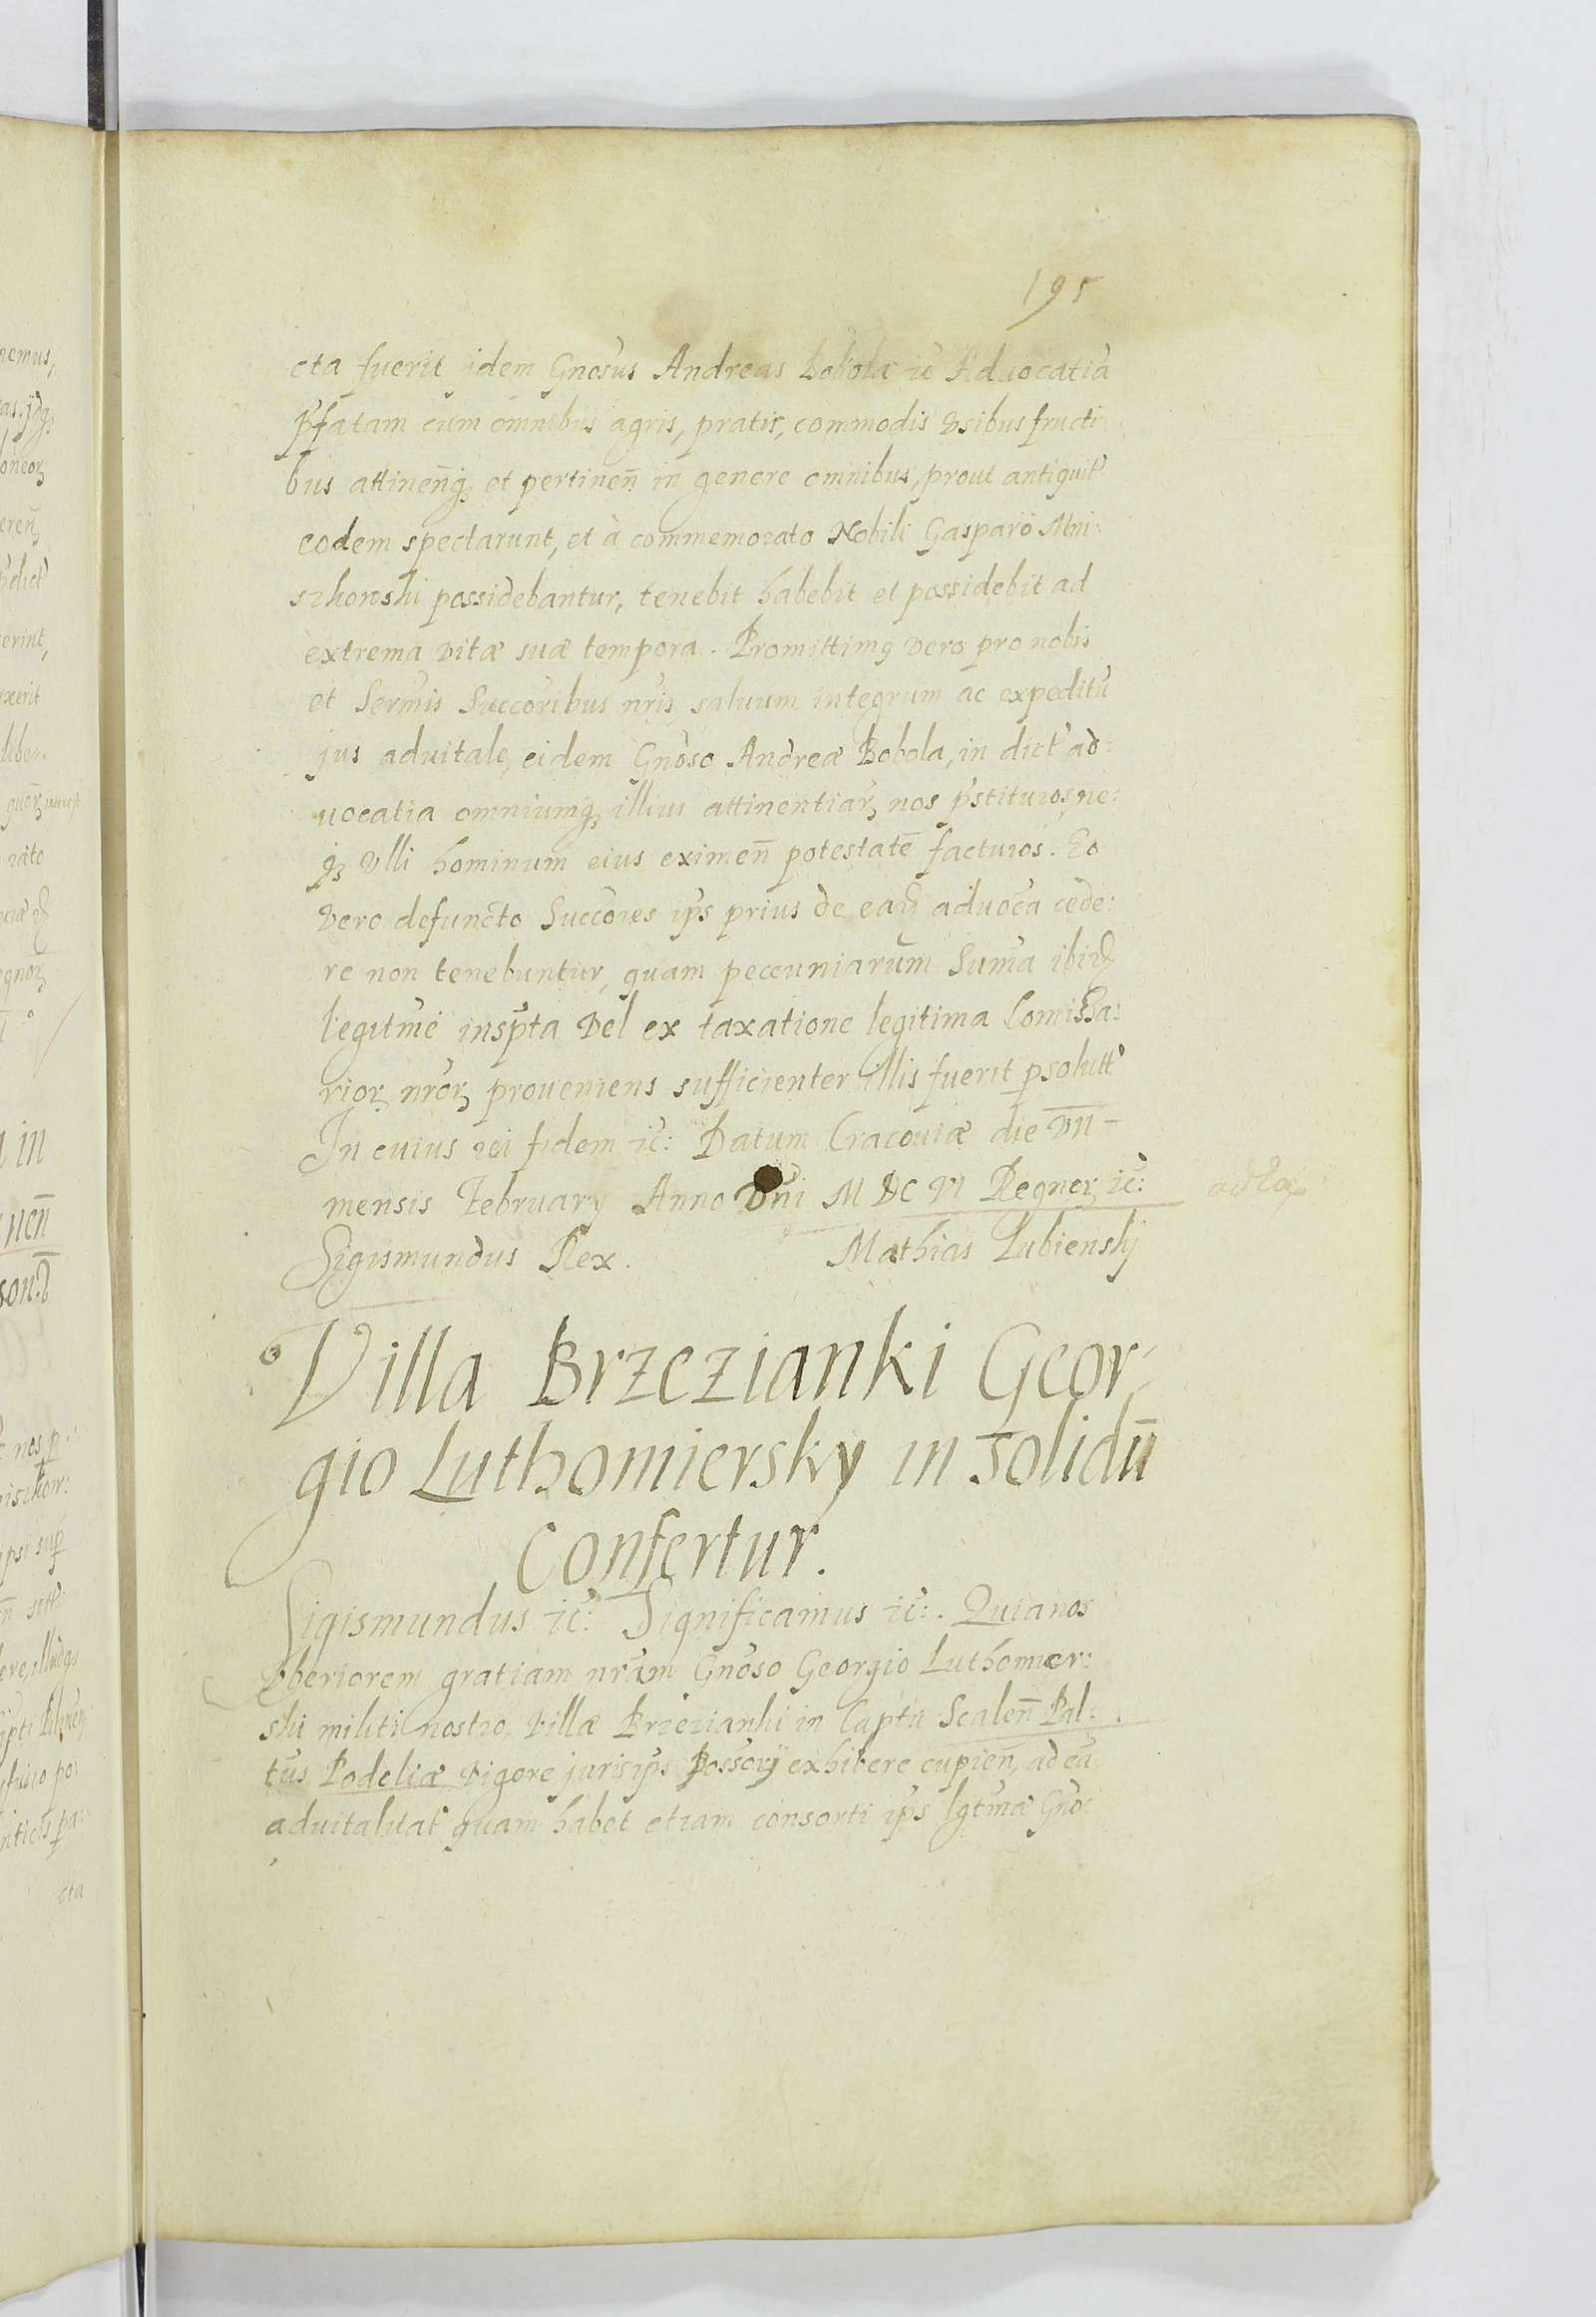 195
cta fuerit idem Gnosus Andreas Bobola ic̃ Aduocatiã
p̃fatam cum omnibus agris, pratis, commodis vsibus fructi
bus attinen̄q̨ et pertinen̄ in genere omnibus, prout antiquit'
eodem spectarunt, et à commemorato Nobili Gasparo Mni:
szkowski possidebantur, tenebit habebit et possidebit ad
extrema vitæ suæ tempora. Promittimq vero pro nobis
et Sermis Succoribus nr̃is saluum integrum ac expeditũ
jus aduitale, eidem Gnoso Andreæ Bobola, in dict' ad:
uocatia omniumq̨ illius attinentiarꝝ nos p̃stituros, ne:
q̨ vlli hominum eius eximen̄ potestatē facturos. Eo
vero defuncto Succores ip̃s prius de eaꝺ̨ aduoca cede:
re non tenebuntur, quam peccuniarum Sum̃a ibiꝺ̨
legitme insp̃ta vel ex taxatione legitima Comissa:
riorꝝ nrorꝝ proueniens sufficienter illis fuerit ꝑsolutt'
In cuius rei fidem ic̃: Datum Cracouiæ die VII
mensis February Anno Dñi M DC VI Regnorꝝ ic̃:
Sigismundus Rex. Mathias Lubiensky
Villa Brzezianki Geor
gio Luthomiersky in solidū
confertur.
Sigismundus ic̃: Significamus ic̃:. Quia nos
vberiorem gratiam nrãm Gnoso Georgio Luthomier:
ski militi nostro, Villæ Brzezianki in Captũ Scalen̄ Pal:
tus Podoliæ vigore juris ip̃s Possory exhibere cupien̄, ad eã
aduitalitat' quam habet etiam consorti ip̃s lgtmæ Gno: